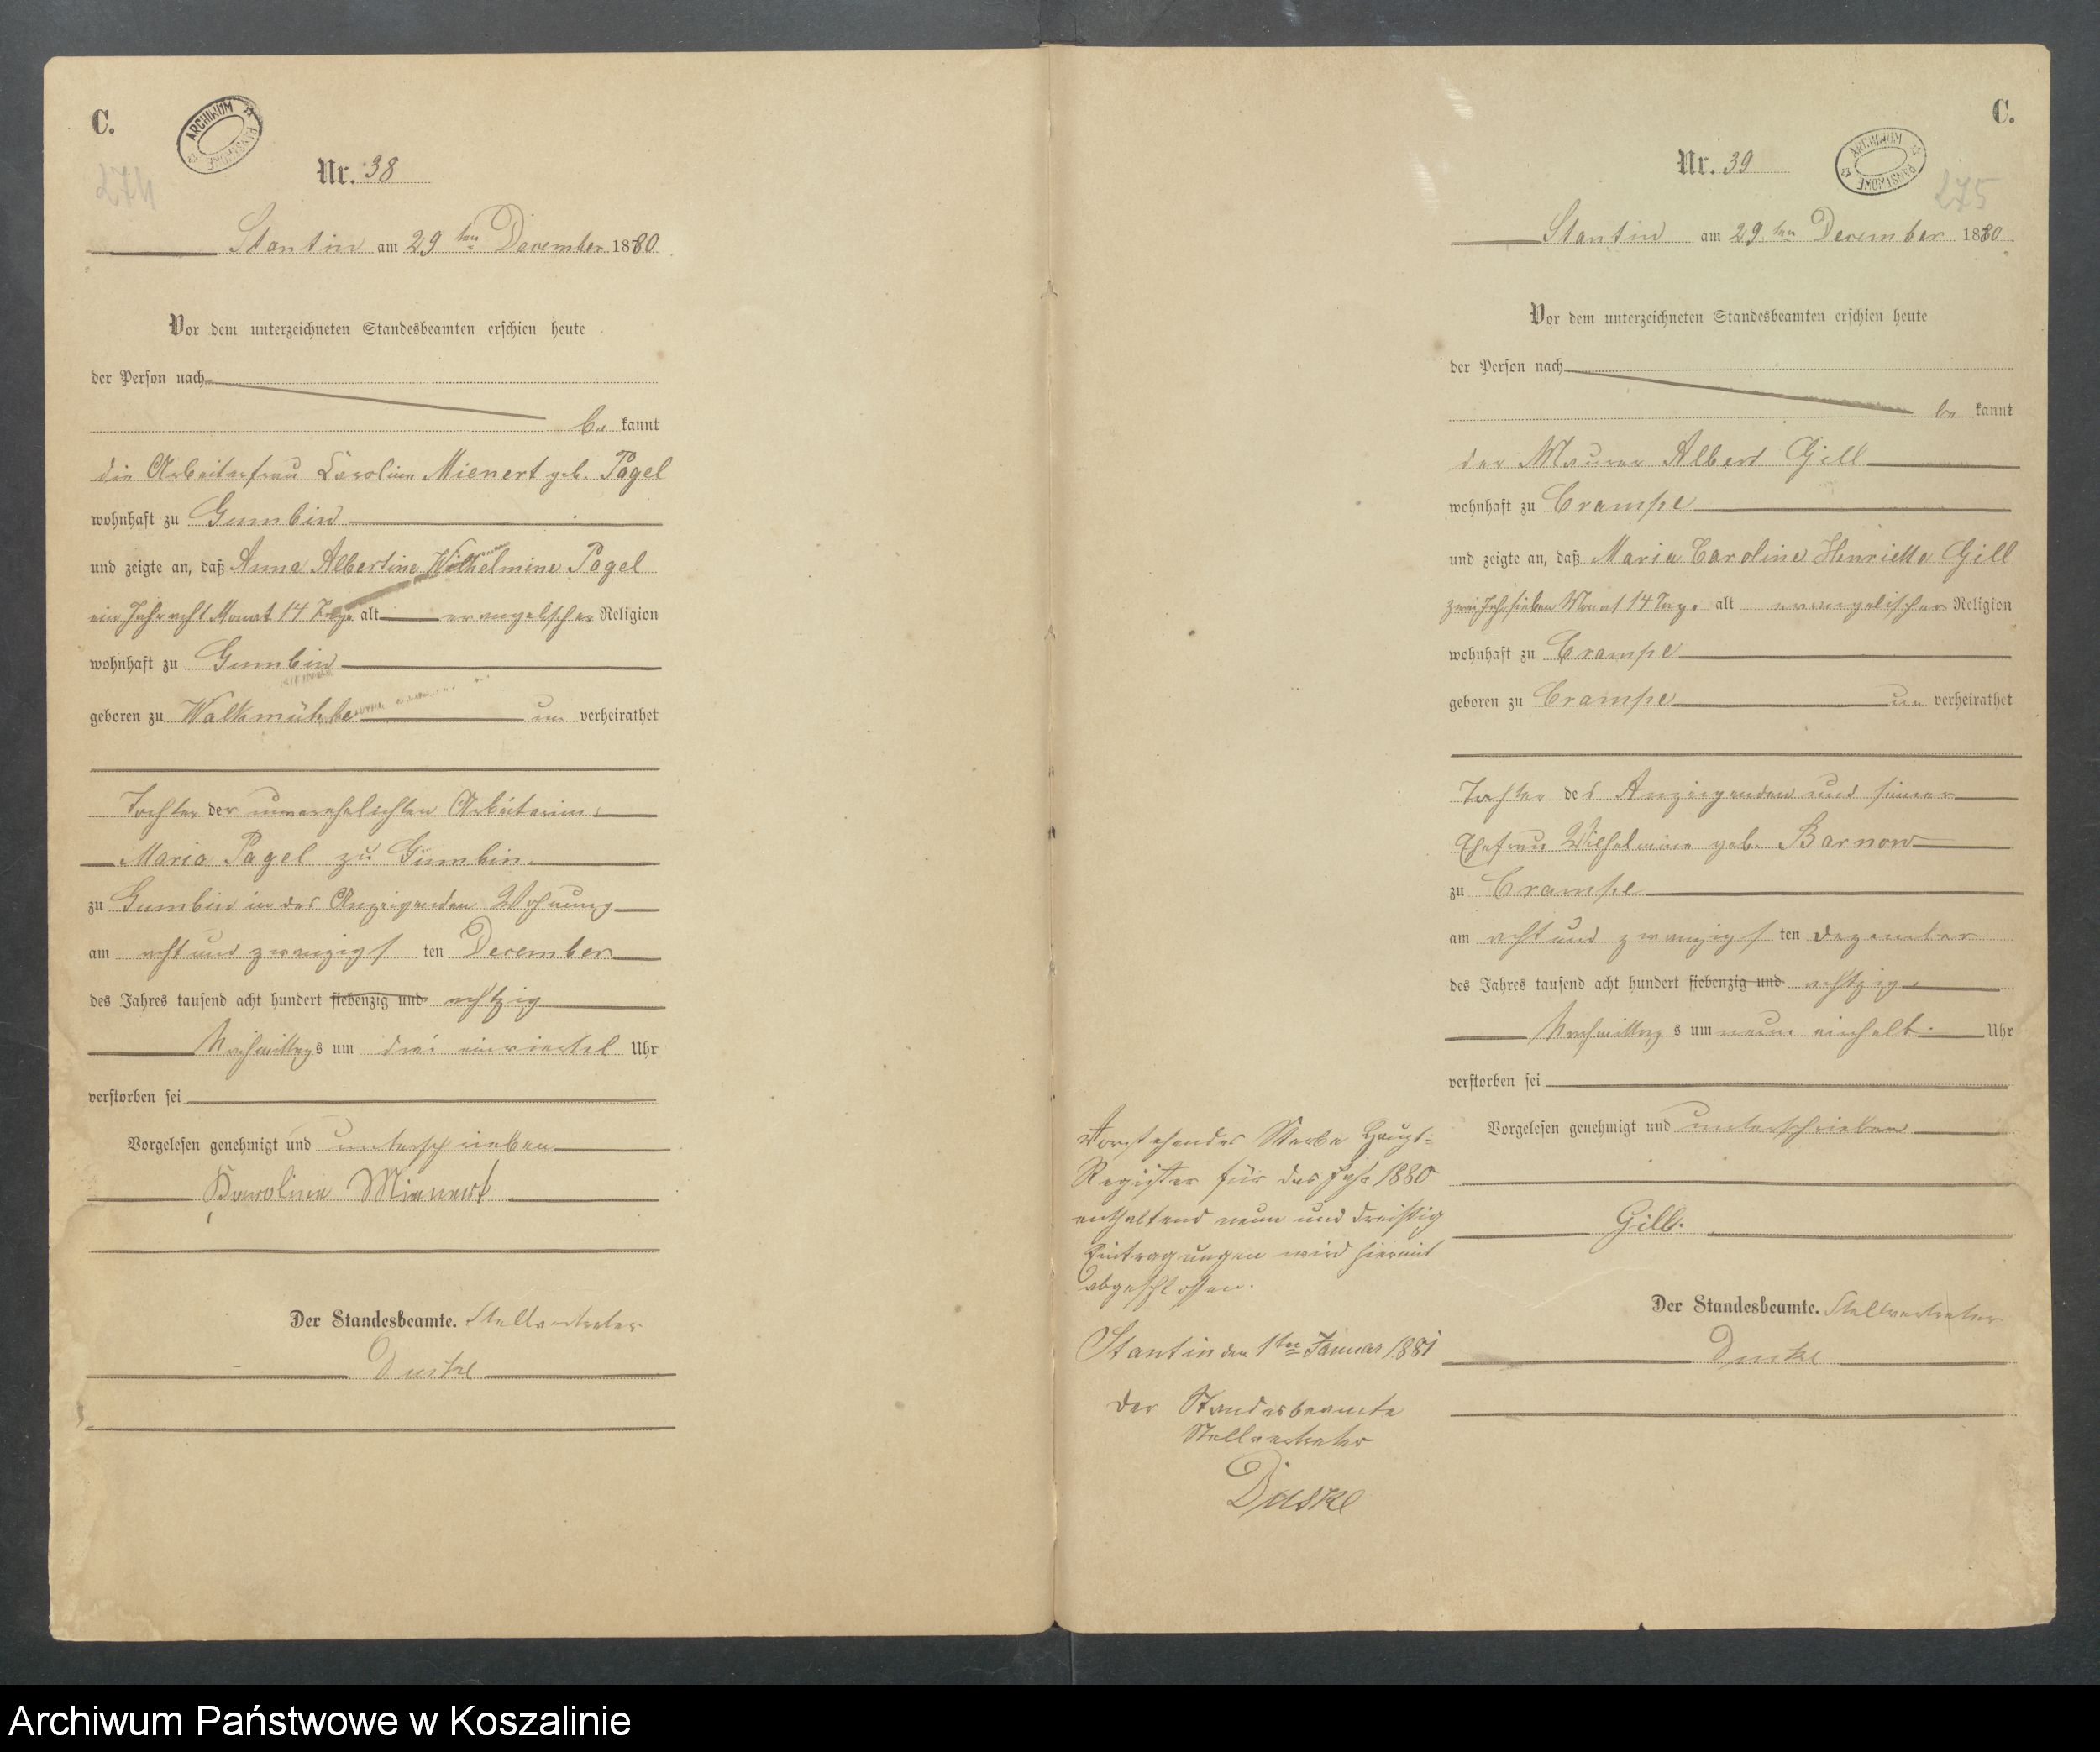 C.
ARCHIWUM PAŃSTWOWE
274
Nr. 38
Stantin am 29 ten December 1880
Vor dem unterzeichneten Standesbeamten erschien heute
der Person nach
be kannt
die Arbeiterfrau Caroline Mienert geb. Pagel
wohnhaft zu Gumbin
und zeigte an, daß Anna Albertine Wilhelmine Pagel
ein Jahr acht Monat 14 Tage alt evangelischer Religion
wohnhaft zu Gumbin
geboren zu Walkmühle un verheirathet
Tochter der unverehelichten Arbeiterin
Maria Pagel zu Gumbin
zu Gumbin in der Anzeigenden Wohnung
am acht und zwanzigs ten December
des Jahres tausend acht hundert siebenzig und achtzig
Nachmittags um drei einviertel Uhr
verstorben sei
Vorgelesen genehmigt und unterschrieben
Karoline Mienert
Der Standesbeamte. Stellvertreter
Duske
C.
ARCHIWUM PAŃSTWOWE
275
Nr. 39
Stantin am 29 ten December 1880
Vor dem unterzeichneten Standesbeamten erschien heute
der Person nach
be kannt
der Maurer Albert Gill
wohnhaft zu Crampe
und zeigte an, daß Maria Caroline Henriette Gill
zwei Jahr sieben Monat 14 Tage alt evangelischer Religion
wohnhaft zu Crampe
geboren zu Crampe un verheirathet
Tochter des Anzeigenden und seiner
Ehefrau Wilhelmine geb. Barnow
zu Crampe
am acht und zwanzigs ten Dezember
des Jahres tausend acht hundert siebenzig und achtzig
Nachmittags um neun einhalb Uhr
verstorben sei
Vorgelesen genehmigt und unterschrieben
Gill.
Der Standesbeamte. Stellvertreter
Duske
Vorstehendes Sterbe Haupt-
Register für das Jahr 1880
enthaltend neun und dreißig
Eintragungen wird hiermit
abgeschlossen.
Stantin den 1ten Januar 1881
Der Standesbeamte
Stellvertreter
Duske
Archiwum Państwowe w Koszalinie